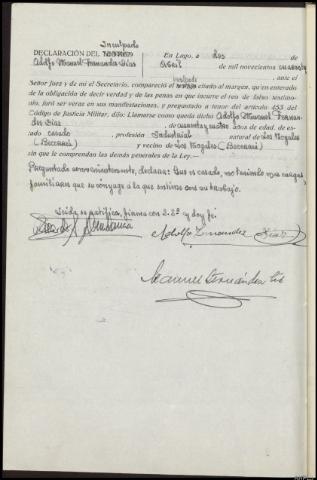 Inculpado
DECLARACIÓN DEL TESTIGO
Adolfo Manuel Fernandez Diaz
En Lugo, a dos
Abril de mil novecientos cuarenta
, ante el
Señor Juez y de mí el Secretario, compareció el testigo citado al margen, quien enterado
de la obligación de decir verdad y de las penas en que incurre el reo de falso testimo-
nio, juró ser veraz en sus manifestaciones, y preguntado a tenor del artículo 453 del
Código de Justicia Militar, dijo: Llamarse como queda dicho Adolfo Manuel Fernan-
dez Diaz, de cuarenta y cuatro años de edad, de esta-
do casado, profesión Industrial natural de Los Nogales
(Becerreá) y vecino de Los Nogales (Becerreá)
sin que le comprendan las demás generales de la Ley.
Preguntado convenientemente, declara: Que es casado, no teniendo mas cargas
familiares que su conyuge a la que sostiene con su trabajo.
Leida, se ratifica, firma con S.Sª doy fé
Adolfo Fernandez Diaz
Manuel Fernández